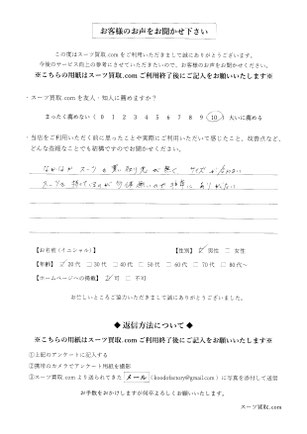 お客様のお声をお聞かせ下さい
この度はスーツ買取.comをご利用いただきまして誠にありがとうございます。
今後のサービス向上の参考にさせていただきたいので、お客様のお声をお聞かせください。
※こちらの用紙はスーツ買取.comご利用終了後にご記入をお願いいたします※
・スーツ買取.comを友人・知人に薦めますか?
まったく薦めない( 0 1 2 3 4 5 6 7 8 9 10 )大いに薦める
・当店をご利用いただく前に思ったことや実際にご利用いただいて感じたこと、改善点など、
どんな些細なことでも結構ですのでお聞かせください。
なかなかスーツの買い取り先が無くサイズが合わない
スーツを
ありがたい
【お名前(イニシャル)】 【性別】 男性 □ 女性
【年齢】 20代 □ 30代 □ 40代 □ 50代 □ 60代 □ 70代 □ 80代〜
【ホームページへの掲載】 可 □ 不可
お忙しいところご協力いただきまして誠にありがとうございました。
◆ 返信方法について ◆
※こちらの用紙はスーツ買取.comご利用終了後にご記入をお願いいたします※
①上記のアンケートに記入する
②携帯のカメラでアンケート用紙を撮影
③スーツ買取.comより送られてきた メール に写真を添付して送信
お手数をおかけしますが何卒よろしくお願いいたします。
スーツ買取.com